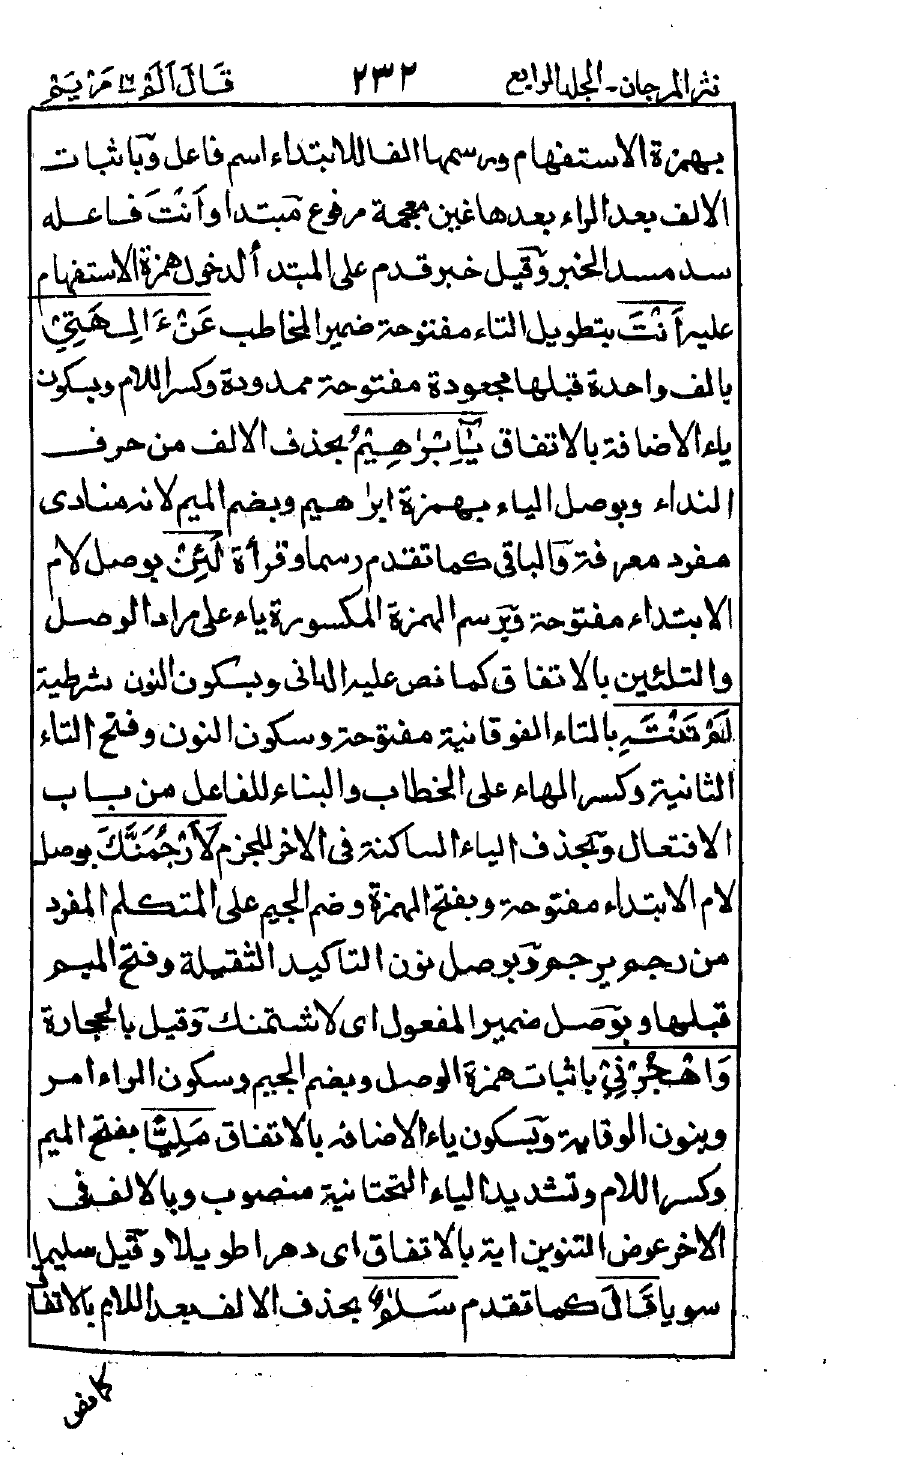 نثر المرجان - المجلد الرابع ٢٣٢ قَالَ اَلَمْ ١٦ مَرْيَمْ
بهمزة الاستفهام ورسمها الفا للابتداء اسم فاعل وبا ثبات
الالف بعد الراء بعدها غين معجمة مرفوع مبتدا وأنت فاعله
سد مسد الخبر وقيل خبر قدم على المبتدأ لدخول همزة الاستفهام
عليه أَنْتَ بتطويل التاء مفتوحة ضمير المخاطب عَنْ ءَالِهَتِيْ
بالف واحدة قبلها مجعودة مفتوحة ممدودة وكسر اللام وبسكون
ياء الاضافة بالاتفاق يٰٓاِبْرٰهِيْمُ بحذف الالف من حرف
النداء وبوصل الياء بهمزة ابرٰهيم وبضم الميم لانه منادى
مفرد معرفة والباقى كما تقدم رسما وقرأة لَئِنْ بوصل لام
الابتداء مفتوحة وبرسم الهمزة المكسورة ياء على مراد الوصل
والتليين بالاتفاق كما نص عليه الدانى وبسكون النون شرطية
لَمْ تَنْتَهِ بالتاء الفوقانية مفتوحة وسكون النون وفتح التاء
الثانية وكسر الهاء على الخطاب والبناء للفاعل من باب
الافتعال وبحذف الياء الساكنة فى الاخر للجزم لَأَرْجُمَنَّكَ بوصل
لام الابتداء مفتوحة وبفتح الهمزة وضم الجيم على المتكلم المفرد
من رجم يرجم وبوصل نون التاكيد الثقيلة وفتح الميم
قبلها وبوصل ضمير المفعول اى لاشتمنك وقيل بالحجارة
وَاهْجُرْنِيْ باثبات همزة الوصل وبضم الجيم وسكون الراء امر
وبنون الوقاية وبسكون ياء الاضافه بالاتفاق مَلِيًّا بفتح الميم
وكسر اللام وتشديد الياء التحتانية منصوب وبالالف فى
الاخر عوض التنوين اية بالاتفاق اى دهرا طويلا وقيل سليما
سويا قَالَ كما تقدم سَلٰمٌ بحذف الالف بعد اللام بالاتفاق
كما نص